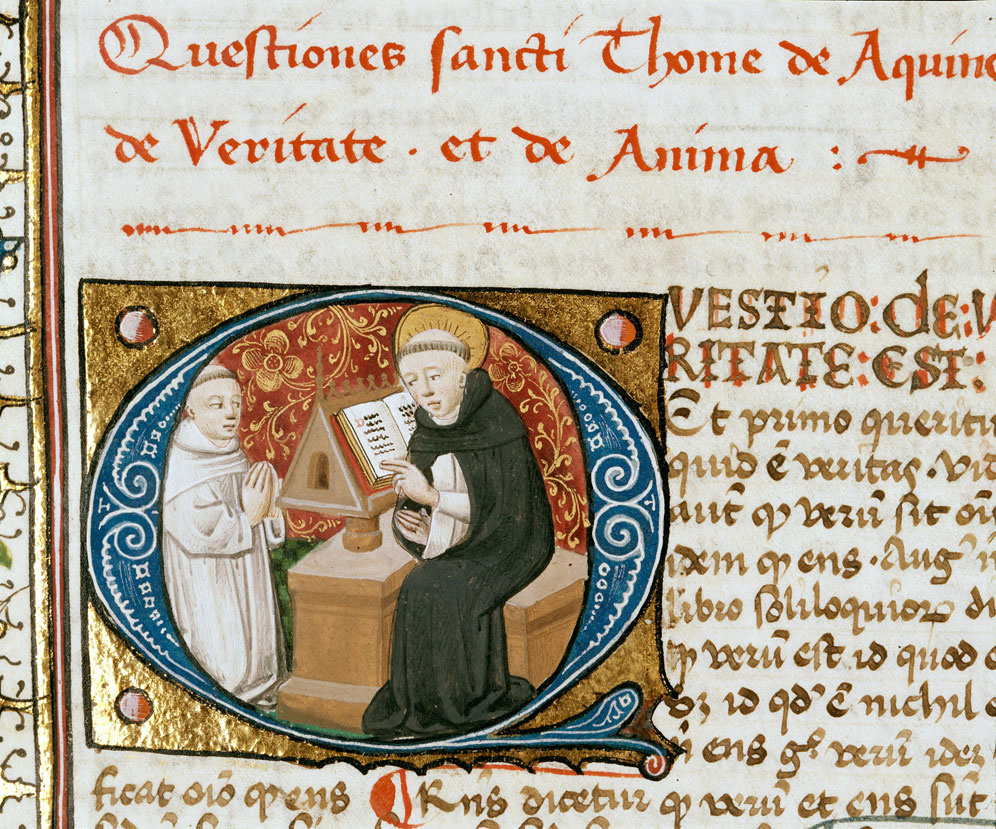 Questiones sancti Thome de Aquine
de Veritate · et de Anima :
QVESTIO: de: V
RITATE: EST:
Et primo queritu
quid ē veritas · vid
aut̄ ꝙ verū sit oī
idem ꝙ ens · Augꝰ
libro soliloquioꝝ di
ꝙ verū est id quod e
id qd' ē nichil e
ens gͦ verū idez
ficat oīo ꝙ ens ¶ Rn̄s dicetur ꝙ verū et ens sūt